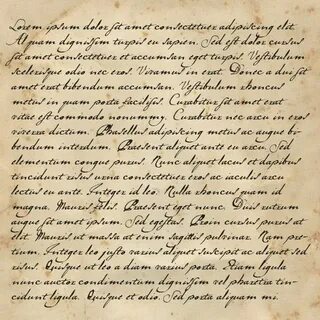 Lorem ipsum dolor sit amet consectetuer adipiscing elit.
Al quam dignissim turpis eu sapien. Sed est dolor cursus
sit amet consectetuer et accumsan eget turpis. Vestibulum
scelerisque odio nec eros. Vivamus in erat. Donec a dui sit
amet erat bibendum accumsan. Vestibulum rhoncus
metus in quam porta facilisis. Curabitur sit amet erat
vitae est commodo nonummy. Curabitur nec arcu in eros
viverra dictum. Phasellus adipiscing metus ac augue bi-
bendum interdum. Praesent aliquet ante eu arcu. Sed
elementum congue purus. Nunc aliquet lacus et dapibus
tincidunt risus urna consectetuer eros ac iaculis arcu
lectus eu ante. Integer id leo. Nulla rhoncus quam id
magna. Mauris felis. Praesent eget nunc. Duis rutrum
augue sit amet ipsum. Sed egestas. Proin cursus purus at
elit. Mauris ut massa at enim sagittis pulvinar. Nam pre-
tium. Integer leo justo varius aliquet suscipit ac aliquet sed
risus. Quisque ut leo a diam varius porta. Etiam ligula
nunc auctor condimentum dignissim vel pharetra tin-
cidunt ligula. Quisque et odio. Sed porta aliquam mi.